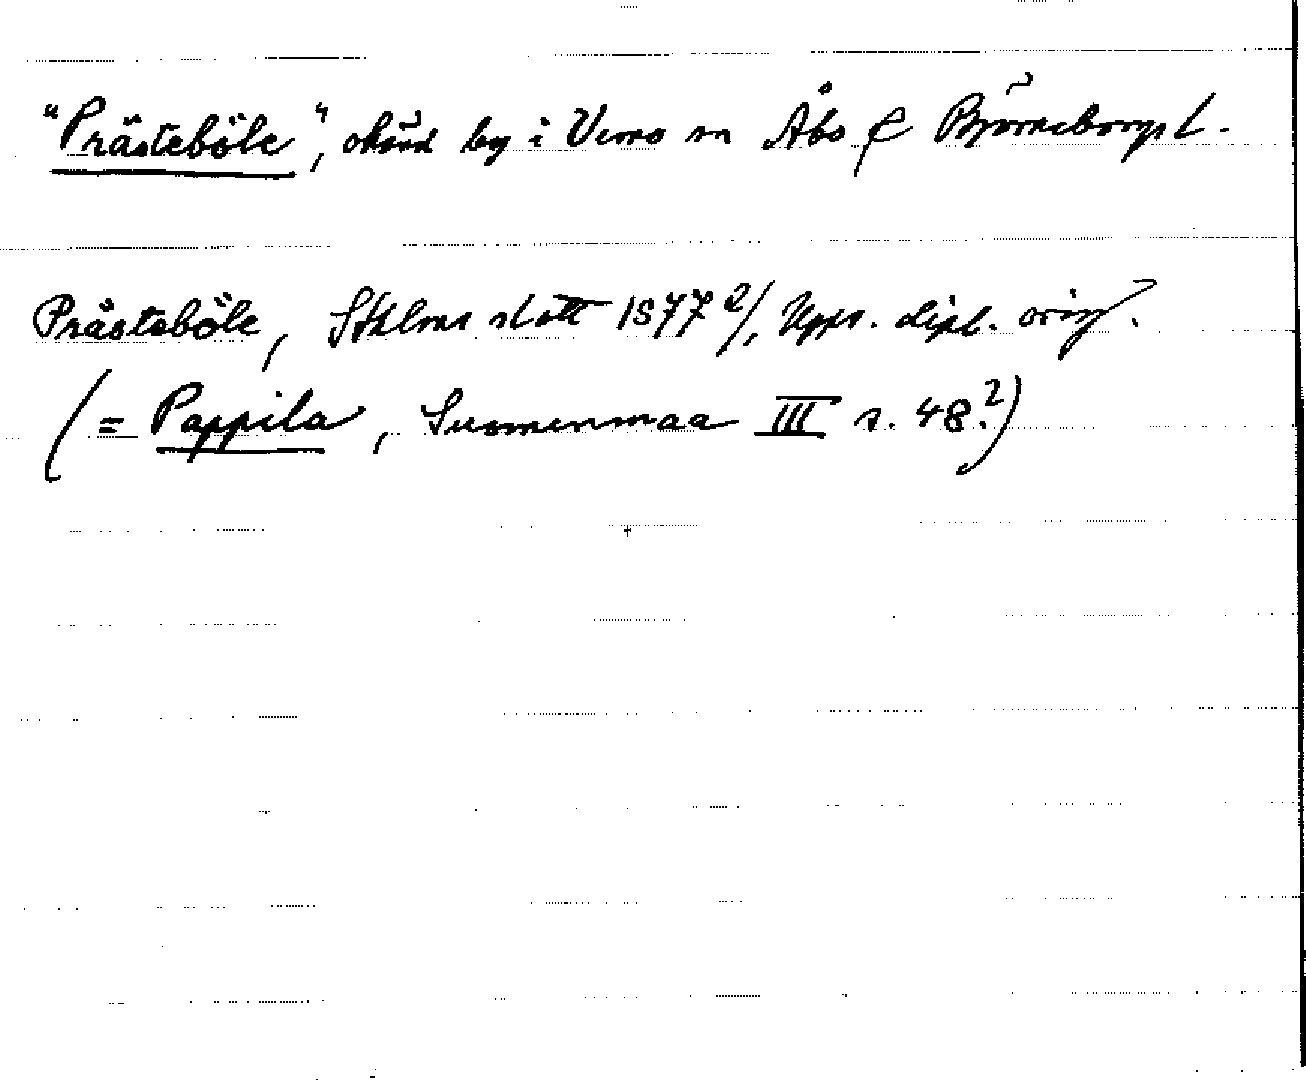 "Prästeböle", okänd by i Vemo sn Åbo & Björneborgs l.
Prästeböle, Sthlms slott 1577 2/, Upps. dipl. orig.
(= Pappila, Suomenmaa III s. 48.?)